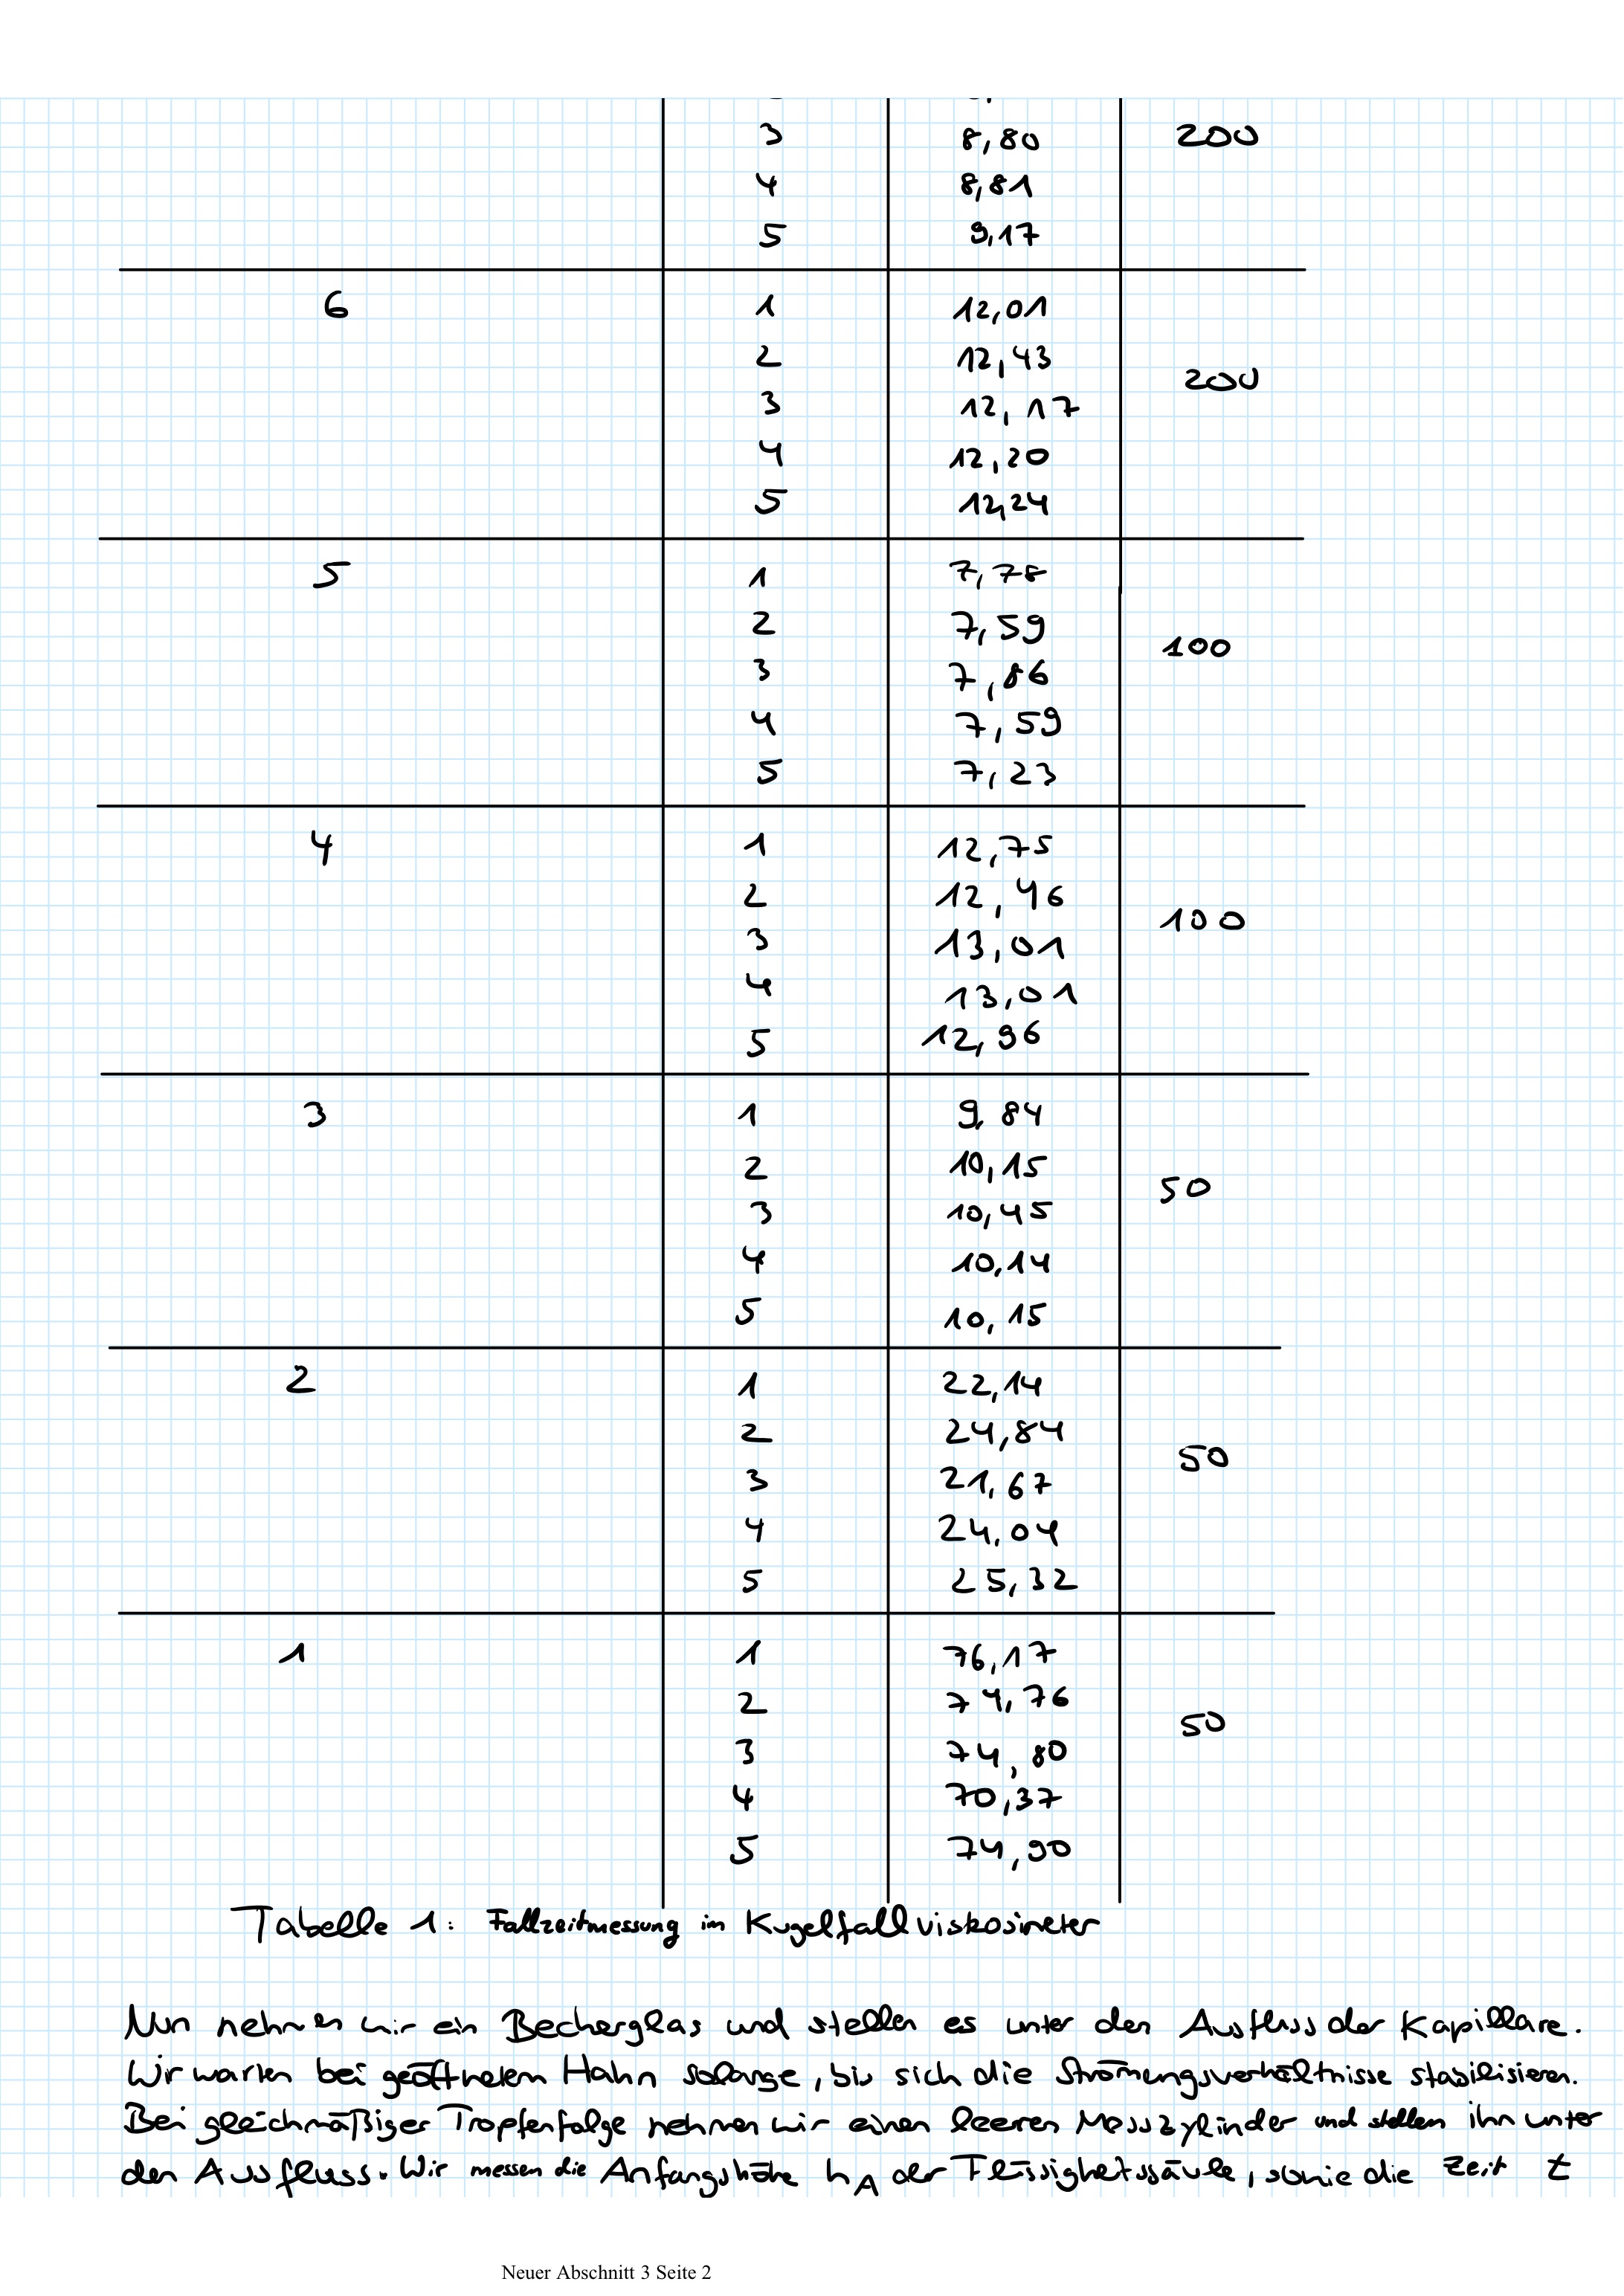 3 8,80 200
4 8,81
5 9,17
6 1 12,01
2 12,43
200
3 12,17
4 12,20
5 12,24
5 1 7,78
2 7,59
100
3 7,86
4 7,59
5 7,23
4 1 12,75
2 12,46
100
3 13,01
4 13,01
5 12,96
3 1 9,84
2 10,15
50
3 10,45
4 10,14
5 10,15
2 1 22,14
2 24,84
50
3 21,67
4 24,04
5 25,32
1 1 76,17
2 74,76
50
3 74,80
4 70,37
5 74,90
Tabelle 1: Fallzeitmessung im Kugelfallviskosimeter
Nun nehmen wir ein Becherglas und stellen es unter den Ausfluss der Kapillare.
Wir warten bei geöffnetem Hahn solange, bis sich die Strömungsverhältnisse stabilisieren.
Bei gleichmäßiger Tropfenfolge nehmen wir einen leeren Messzylinder und stellen ihn unter
den Ausfluss. Wir messen die Anfangshöhe h_A der Flüssigkeitssäule, sowie die Zeit t
Neuer Abschnitt 3 Seite 2